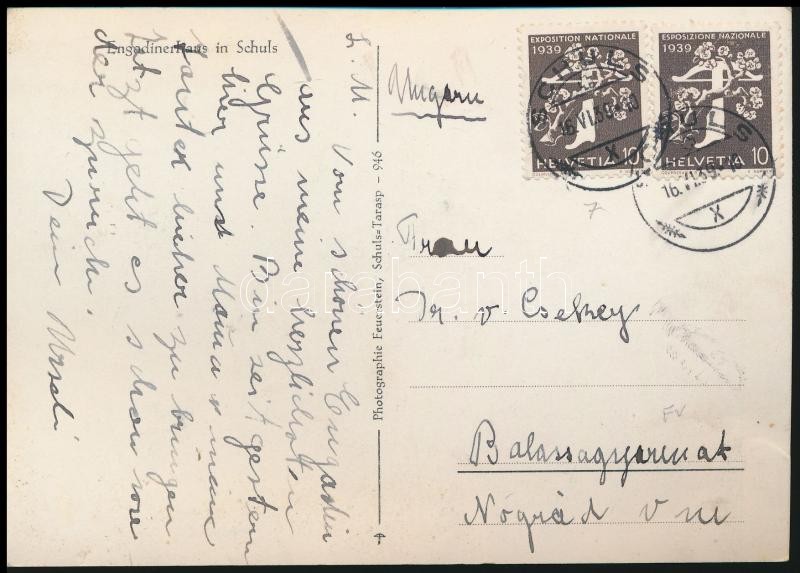 Engadinerhaus in Schuls
L. M.
Vom schönen Engadin
aus meine herzlichsten
Grüsse. Bin seit gestern
hier um Mama &
hieher zu bringen
Jetzt geht es schon
zurück.
Dein
Photographie Feuerstein, Schuls-Tarasp – 946
Ungarn
EXPOSITION NATIONALE
1939
HELVETIA 10
ESPOSIZIONE NAZIONALE
1939
HELVETIA 10
SCHULS
16.VI.39
X
SCHULS
16.VI.39
X
7
Frau
Dr. v. Csekey
FV
Balassagyarmat
Nógrád Vm
darabanth